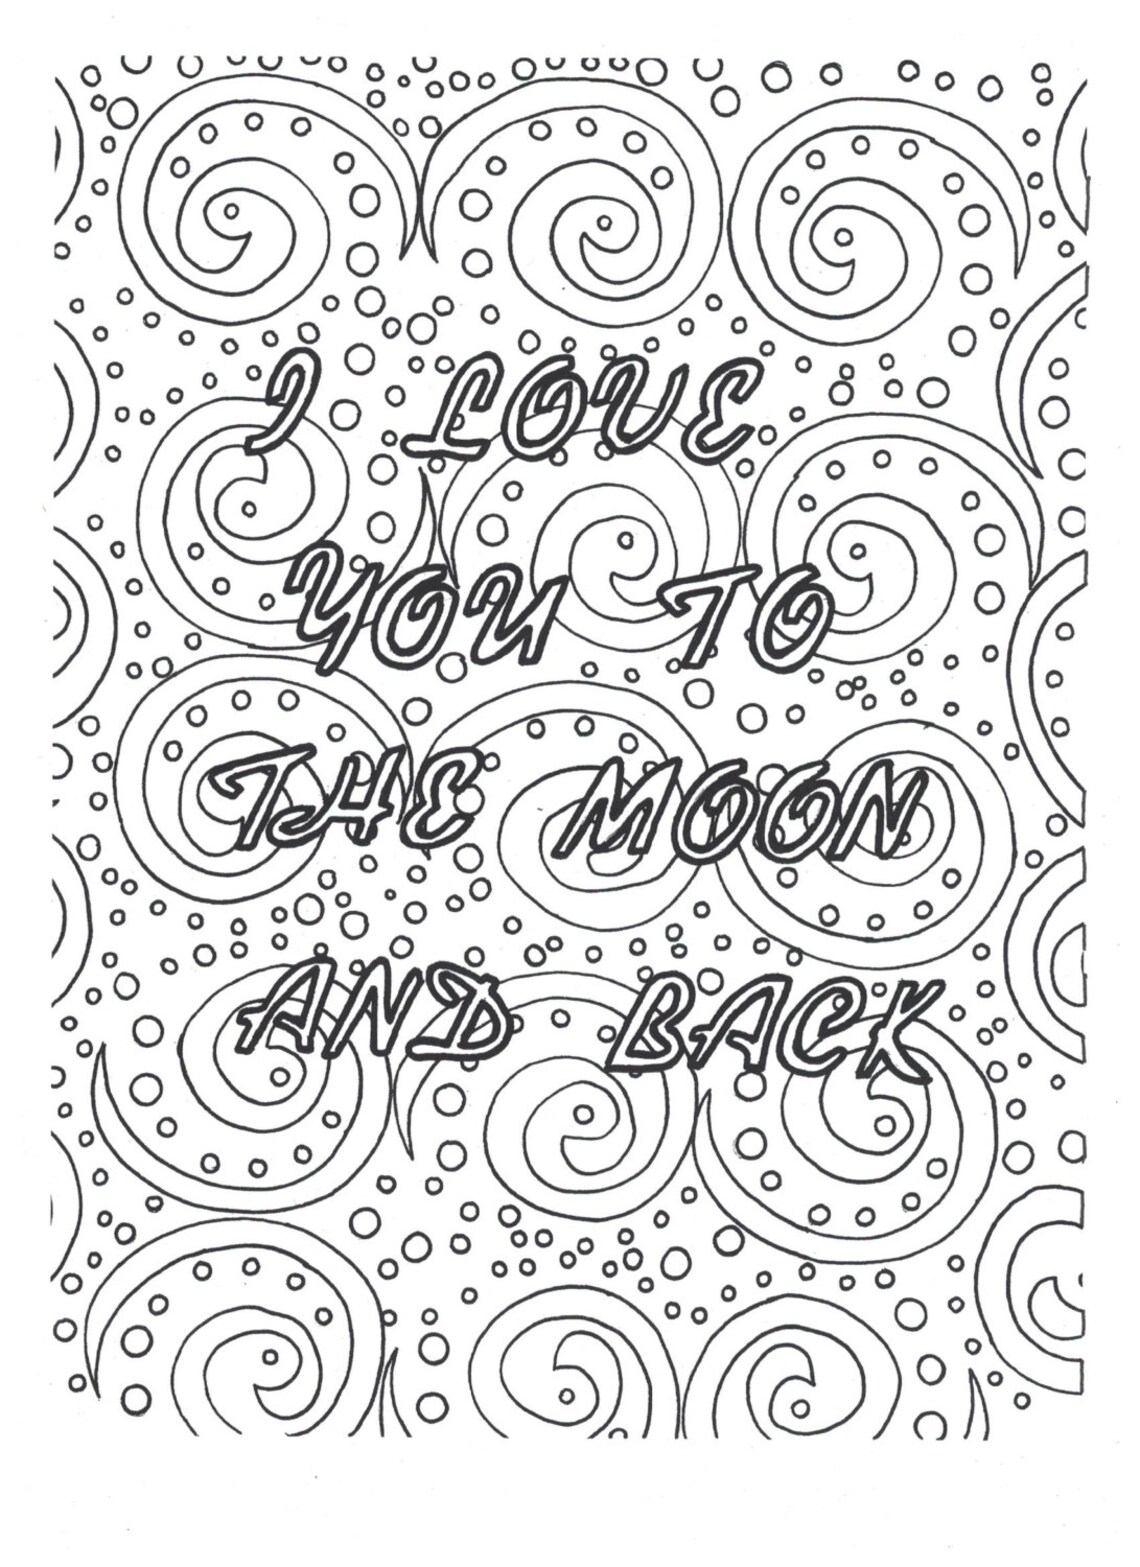 I LOVE
YOU TO
THE MOON
AND BACK